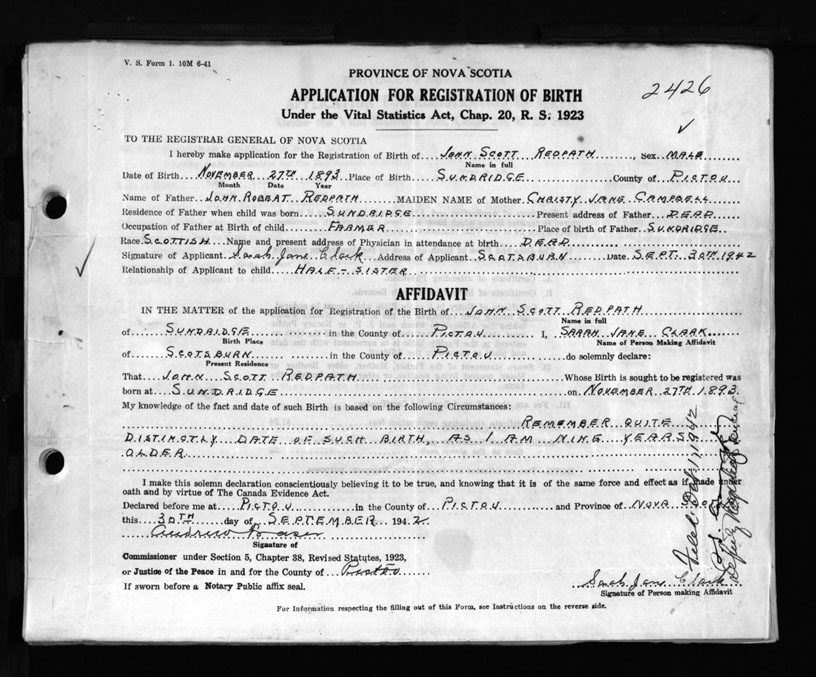 V. S. Form 1. 10M 6-41
PROVINCE OF NOVA SCOTIA
2426
APPLICATION FOR REGISTRATION OF BIRTH
Under the Vital Statistics Act, Chap. 20, R. S. 1923
TO THE REGISTRAR GENERAL OF NOVA SCOTIA
I hereby make application for the Registration of Birth of JOHN SCOTT REDPATH, Sex MALE
Name in full
Date of Birth NOVEMBER 27TH 1893 Place of Birth SUNDRIDGE County of PICTOU
Month Date Year
Name of Father JOHN ROBERT REDPATH MAIDEN NAME of Mother CHRISTY JANE CAMPBELL
Residence of Father when child was born SUNDRIDGE Present address of Father DEAD
Occupation of Father at Birth of child FARMER Place of birth of Father SUNDRIDGE
Race SCOTTISH Name and present address of Physician in attendance at birth DEAD
Signature of Applicant Sarah Jane Clark Address of Applicant SCOTSBURN Date SEPT. 30TH 1942
Relationship of Applicant to child HALF-SISTER
AFFIDAVIT
IN THE MATTER of the application for Registration of the Birth of JOHN SCOTT REDPATH
Name in full
of SUNDRIDGE in the County of PICTOU I, SARAH JANE CLARK
Birth Place Name of Person Making Affidavit
of SCOTSBURN in the County of PICTOU do solemnly declare:
Present Residence
That JOHN SCOTT REDPATH Whose Birth is sought to be registered was
born at SUNDRIDGE on NOVEMBER 27TH 1893
My knowledge of the fact and date of such Birth is based on the following Circumstances:
REMEMBER QUITE
DISTINCTLY DATE OF SUCH BIRTH, AS I AM NINE YEARS
OLDER
I make this solemn declaration conscientiously believing it to be true, and knowing that it is of the same force and effect as if made under
oath and by virtue of The Canada Evidence Act.
Declared before me at PICTOU in the County of PICTOU and Province of NOVA SCOTIA
this 30TH day of SEPTEMBER 1942
Andrew Fraser
Signature of
Commissioner under Section 5, Chapter 38, Revised Statutes, 1923,
or Justice of the Peace in and for the County of Pictou
If sworn before a Notary Public affix seal.
Sarah Jane Clark
Signature of Person making Affidavit
For Information respecting the filling out of this Form, see Instructions on the reverse side.
Filed
1942
Deputy Registrar General